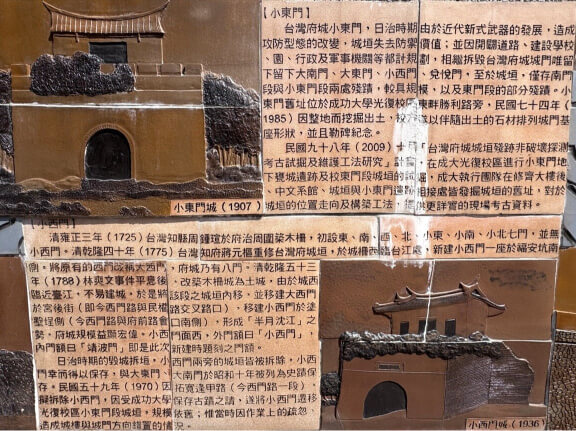 【小東門】
台灣府城小東門，日治時期由於近代新式武器的發展，造成
攻防型態的改變，城垣失去防禦價值；並因開闢道路、建設學校
、園、行政及軍事機關等都計規劃，相繼拆毀台灣府城城門唯留
下留下大南門、大東門、小西門、兌悅門，至於城垣，僅存南門
段與小東門段兩處殘蹟，較具規模，以及東門段的部分殘蹟。小
東門舊址位於成功大學光復校區東畔勝利路旁，民國七十四年（
1985）因整地而挖掘出土，校方遂以伴隨出土的石材排列城門基
座形狀，並且勒碑紀念。
民國九十八年（2009）十月「台灣府城城垣殘跡非破壞探測
考古試掘及維護工法研究」計畫，在成大光復校區進行小東門地
下甕城遺跡及校東門段城垣的試掘，成大執行團在修齊大樓後
、中文系館、城垣與小東門遺跡相接處皆發掘城垣的舊址，對於
城垣的位置走向及構築工法，提供更詳實的現場考古資料。
小東門城（1907）
【小西門】
清雍正三年（1725）台灣知縣周鍾瑄於府治周圍築木柵，初設東、南、西、北、小東、小南、小北七門，並無
小西門。清乾隆四十年（1775）台灣知府蔣元樞重修台灣府城，於城柵西臨台江處，新建小西門一座於福安坑南
側，將原有的西門改稱大西門，府城乃有八門。清乾隆五十三
年（1788）林爽文事件平息後，改築木柵城為土城，由於城西
臨近臺江，不易建城，於是將該段之城垣內移，並移建大西門
於宮後街（即今西門路與民權路交叉路口），移建小西門於塗
墼埕側（今西門路與府前路會口南側），形成「半月沈江」之
勢，府城規模益顯宏偉。小西門面西，外門額曰「小西門」，
內門額曰「靖波門」，即是此次新建時題刻之門額。
日治時期的毀城拆垣，小西門兩旁的城垣皆被拆除，小西
門幸而得以保存，與大東門、大南門於昭和十年被列為史蹟保
存。民國五十九年（1970）因拓寬逢甲路（今西門路一段）
擬拆除小西門，因受成功大學保存古蹟之請，遂將小西門遷移
光復校區小東門段城垣，規模依舊；惟當時因作業上的疏忽
造成城樓與城門方向錯置的情況。
小西門城（1936）